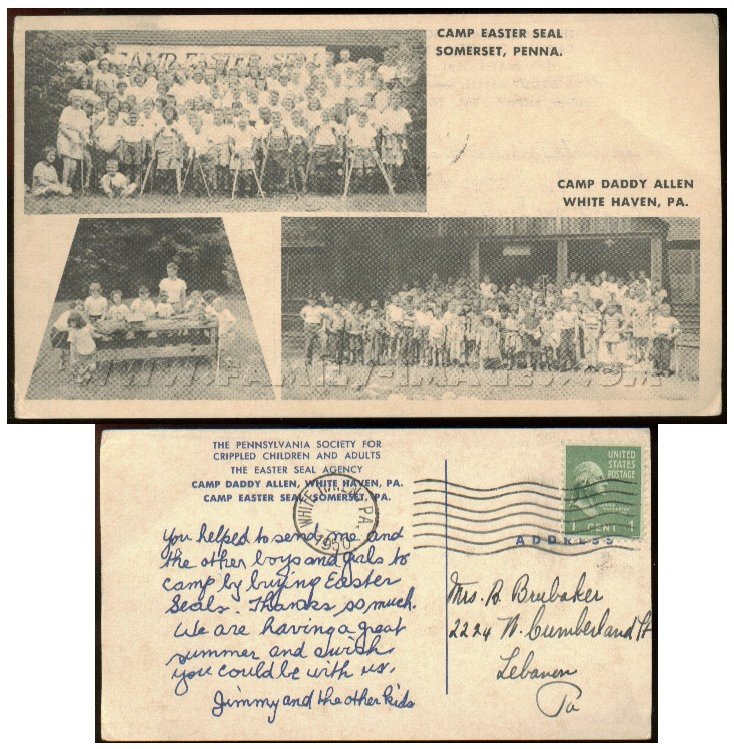 CAMP EASTER SEAL
SOMERSET, PENNA.
CAMP EASTER SEAL
CAMP DADDY ALLEN
WHITE HAVEN, PA.
THE PENNSYLVANIA SOCIETY FOR
CRIPPLED CHILDREN AND ADULTS
THE EASTER SEAL AGENCY
CAMP DADDY ALLEN, WHITE HAVEN, PA.
CAMP EASTER SEAL, SOMERSET, PA.
WHITE HAVEN, PA.
1950
UNITED
STATES
POSTAGE
1 CENT 1
ADDRESS
You helped to send me and
the other boys and girls to
camp by buying Easter
Seals. Thanks so much.
We are having a great
summer and wish
you could be with us.
Jimmy and the other kids
Mrs. B. Brubaker
2224 W. Cumberland St
Lebanon
Pa